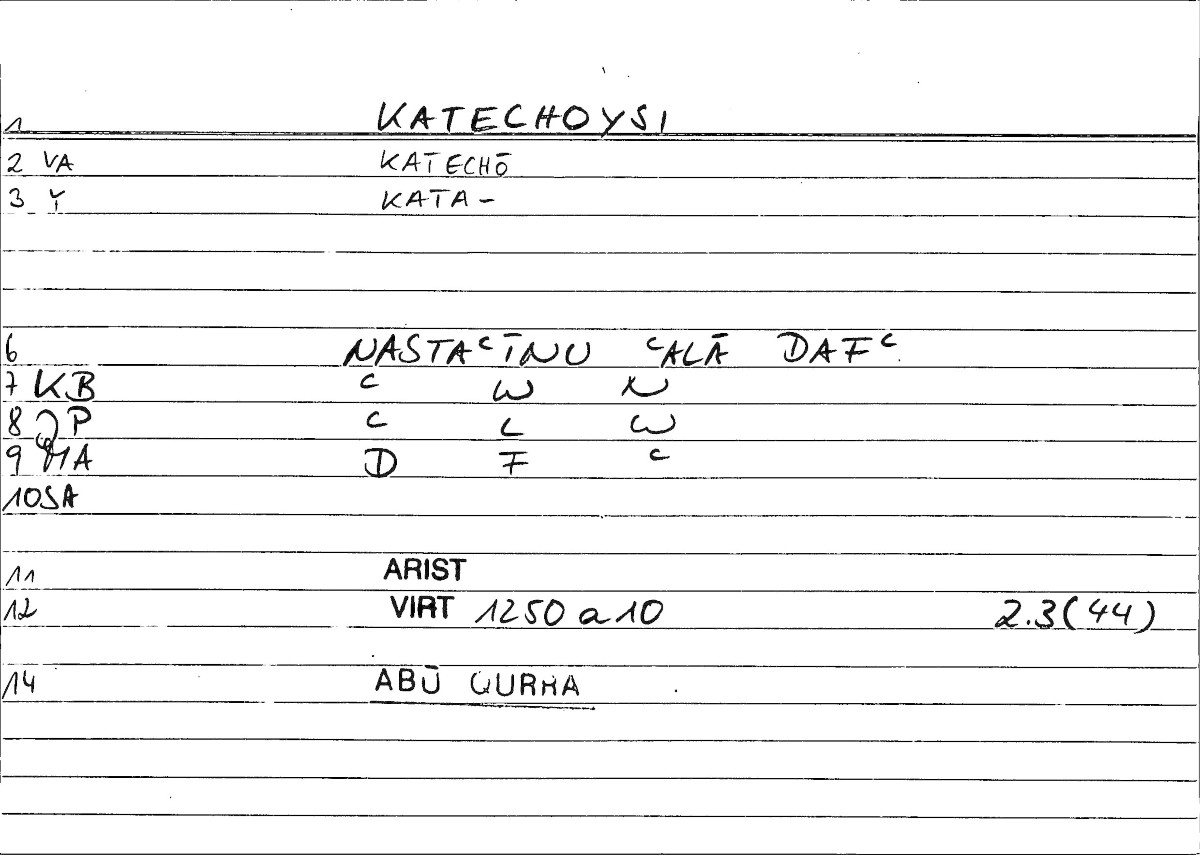 1 KATECHOYSI
2 VA KATECHŌ
3 Y KATA-
6 NASTAᶜĪNU ᶜALĀ DAFᶜ
7 KB ᶜ W N
8 QP ᶜ L W
9 MA D F ᶜ
10 SA
11 ARIST
12 VIRT 1250 a 10 2.3(44)
14 ABŪ QURRA